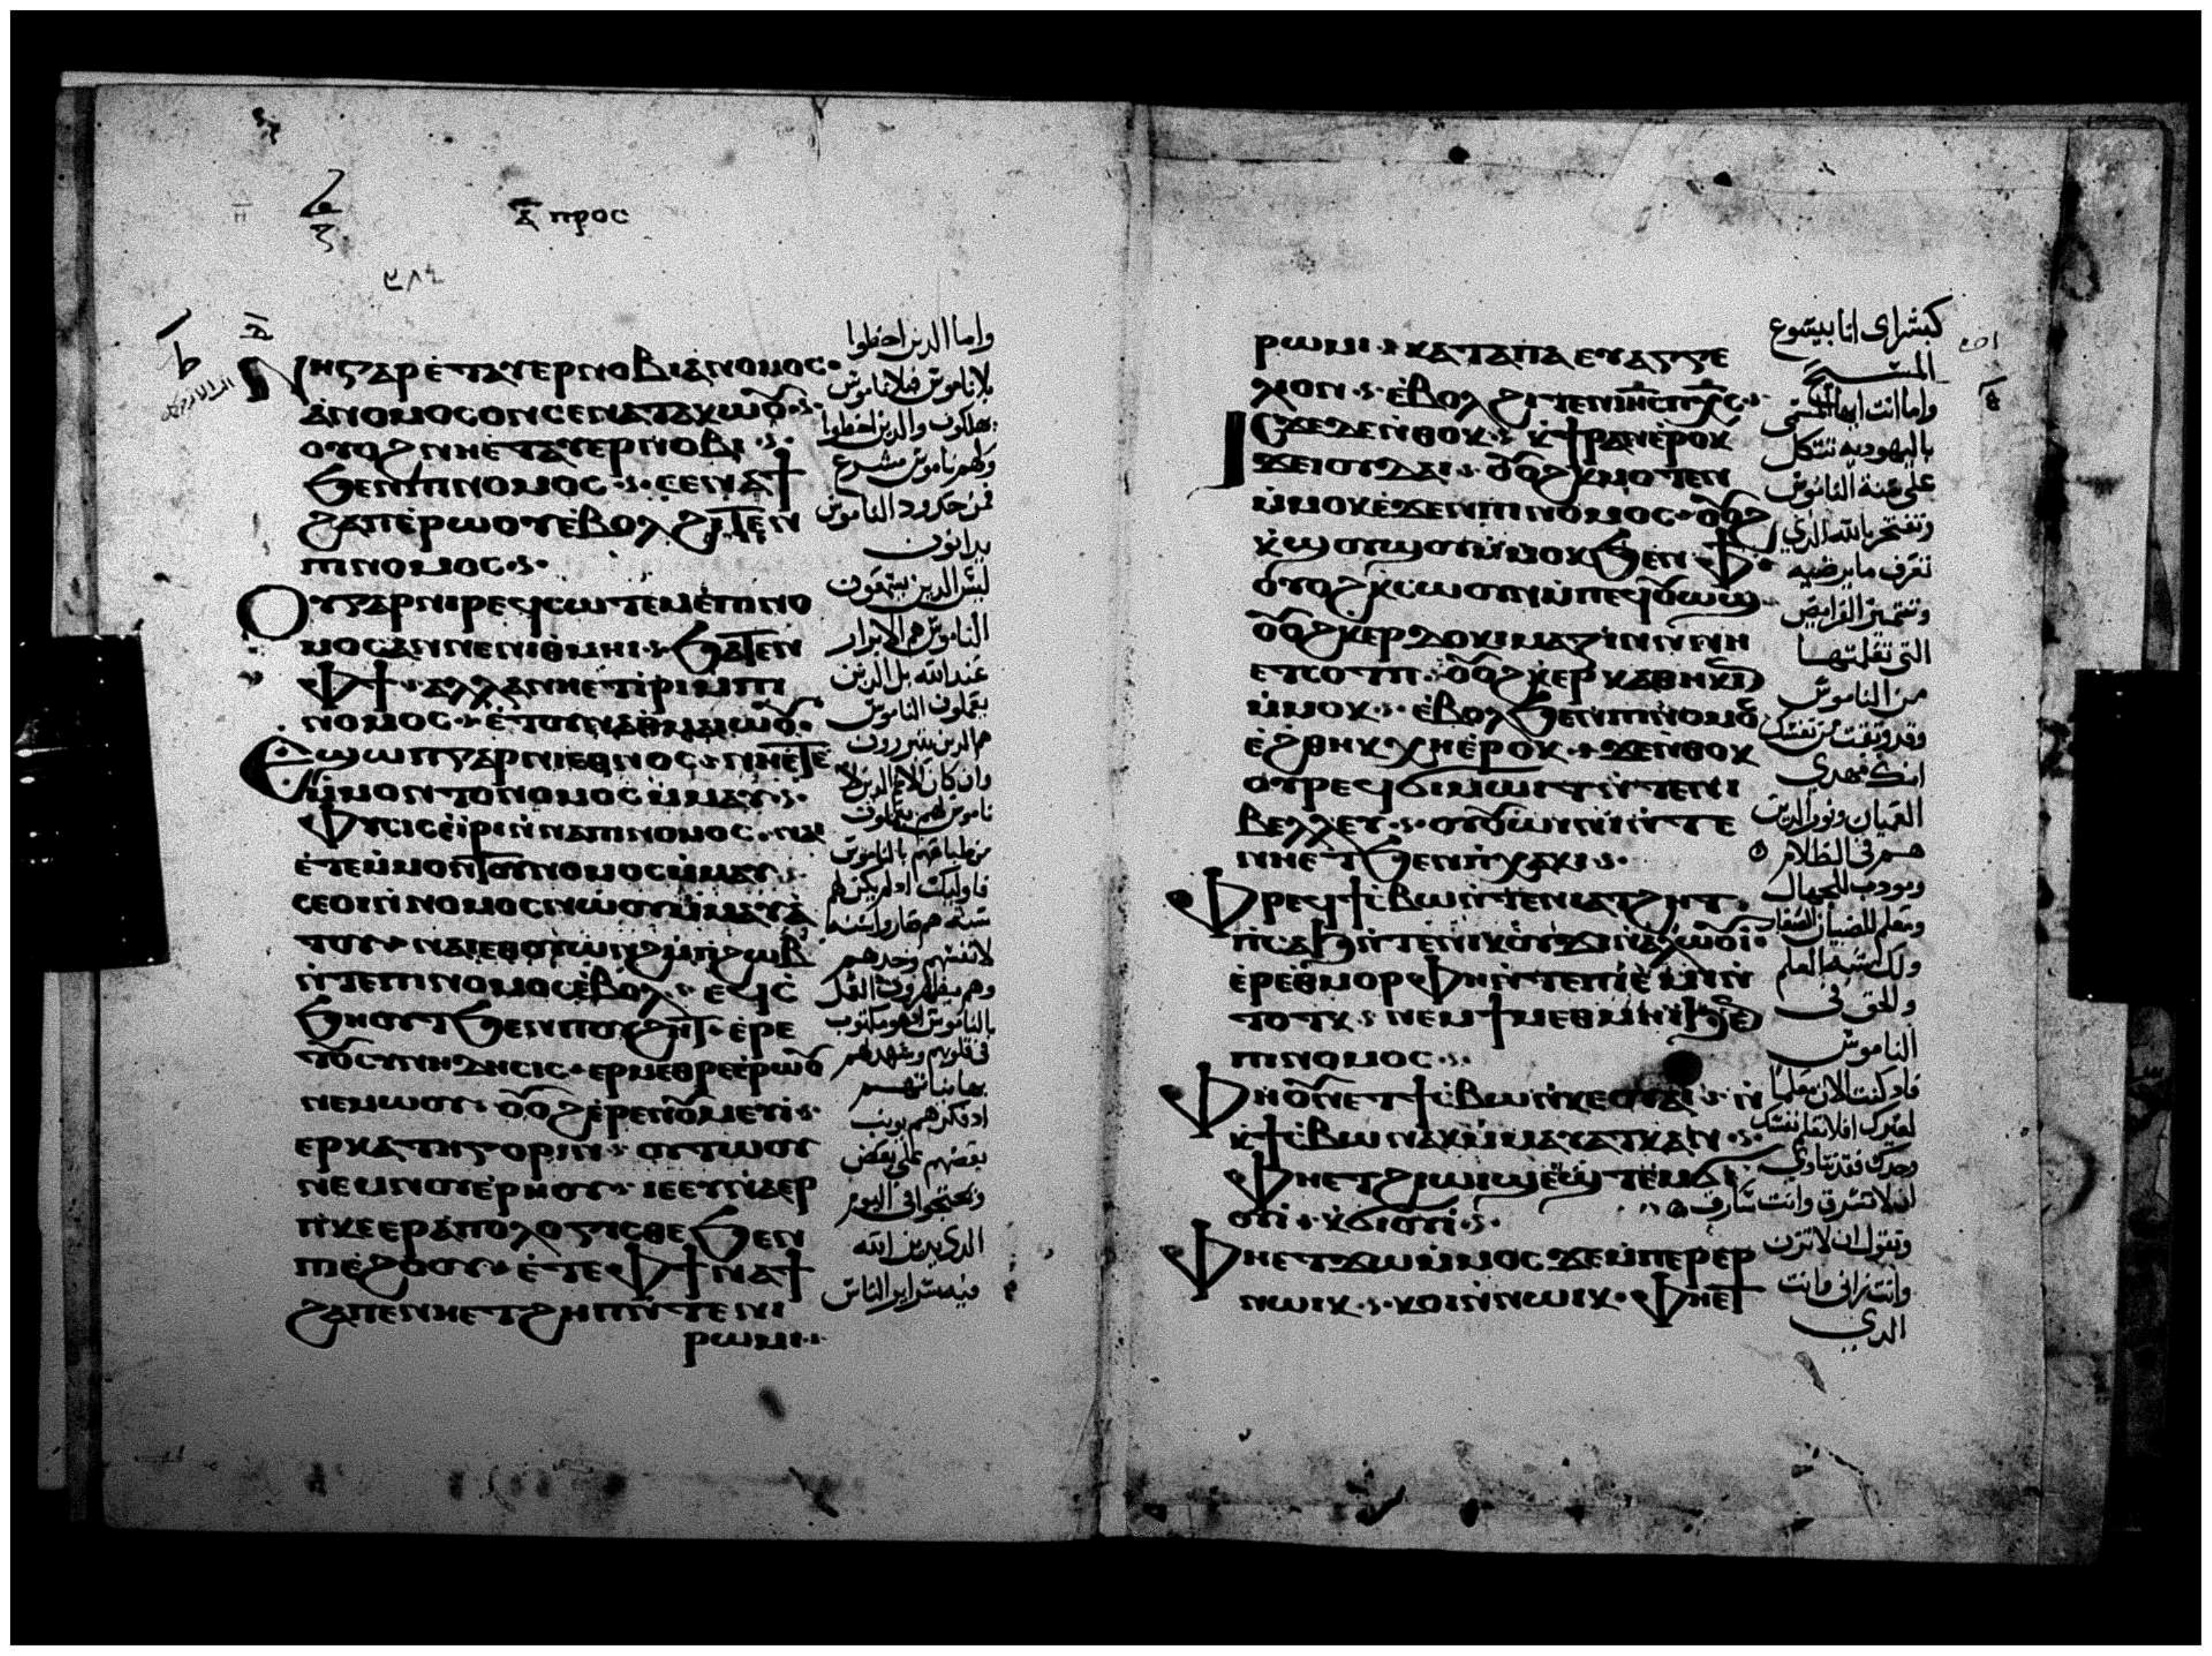 ⲁ̄ ⲡⲣⲟⲥ
ⲛⲏⲅⲁⲣ ⲉ̀ⲧⲁⲩⲉⲣⲛⲟⲃⲓ ⲁ̀ⲛⲟⲙⲟⲥ·
ⲁ̀ⲛⲟⲙⲟⲥ ⲟⲛ ⲥⲉⲛⲁⲧⲁⲕⲱⲟⲩ
ⲟⲩⲟϩ ⲛⲏⲉ̀ⲧⲁⲩⲉⲣⲛⲟⲃⲓ
ϧⲉⲛⲡⲓⲛⲟⲙⲟⲥ ⲥⲉⲛⲁϯ
ϩⲁⲡ ⲉ̀ⲣⲱⲟⲩ ⲉ̀ⲃⲟⲗ ϩⲓⲧⲉⲛ
ⲡⲓⲛⲟⲙⲟⲥ
ⲟⲩⲅⲁⲣ ⲛⲓⲣⲉϥⲥⲱⲧⲉⲙ ⲉ̀ⲡⲓⲛⲟ
ⲙⲟⲥ ⲁⲛⲛⲉ ⲛⲓⲑⲙⲏⲓ ϧⲁⲧⲉⲛ
ⲫϯ ⲁⲗⲗⲁ ⲛⲏⲉⲧⲓ̀ⲣⲓ ⲙⲡⲓ
ⲛⲟⲙⲟⲥ ⲉ̀ⲧⲟⲩⲛⲁⲑⲙⲁⲓⲱⲟⲩ
ⲉϣⲱⲡ ⲅⲁⲣ ⲛⲓⲉⲑⲛⲟⲥ ⲛⲏⲉⲧⲉ
ⲙ̀ⲙⲟⲛⲧⲟⲩ ⲛⲟⲙⲟⲥ ⲙ̀ⲙⲁⲩ
ⲫⲩⲥⲓⲥ ⲉ̀ⲓ̀ⲣⲓ ⲛ̀ⲛⲁⲡⲓⲛⲟⲙⲟⲥ ⲛⲁⲓ
ⲉ̀ⲧⲉⲙ̀ⲙⲟⲛⲧⲟⲩ ⲛⲟⲙⲟⲥ ⲙ̀ⲙⲁⲩ
ⲥⲉⲟⲓ ⲛ̀ⲛⲟⲙⲟⲥ ⲛⲱⲟⲩ ⲙ̀ⲙⲁⲩⲁ
ⲧⲟⲩ ⲛⲁⲓ ⲉⲑⲟⲩⲱⲛϩ ⲙ̀ⲡϩⲱⲃ
ⲛ̀ⲧⲉⲡⲓⲛⲟⲙⲟⲥ ⲉ̀ⲃⲟⲗ ⲉϥⲥ̀
ϧⲏⲟⲩⲧ ϧⲉⲛⲡⲟⲩϩⲏⲧ ⲉ̀ⲣⲉ
ⲧⲟⲩⲥⲩⲛⲏⲇⲏⲥⲓⲥ ⲉⲣⲙⲉⲑⲣⲉ ⲉ̀ⲣⲱⲟⲩ
ⲛⲉⲙⲱⲟⲩ ⲟⲩⲟϩ ⲉ̀ⲣⲉⲛⲟⲩⲙⲉⲩⲓ
ⲉⲣⲕⲁⲧⲏⲅⲟⲣⲓⲛ ⲟⲩⲧⲱⲟⲩ
ⲛⲉⲙⲛⲟⲩⲉ̀ⲣⲏⲟⲩ ⲓⲉ ⲉⲩⲛⲁⲉⲣ
ⲡ̀ⲕⲉⲉⲣⲁ̀ⲡⲟⲗⲟⲅⲓⲥⲑⲉ ϧⲉⲛ
ⲡⲓⲉ̀ϩⲟⲟⲩ ⲉ̀ⲧⲉ ⲫϯ ⲛⲁϯ
ϩⲁⲡ ⲉⲛⲛⲏⲉⲧϩⲏⲡ ⲛ̀ⲧⲉⲛⲓ
ⲣⲱⲙⲓ
واما الذين اخطوا
بلا ناموس فبلا ناموس
يهلكون والذين اخطوا
ولهم ناموس مشرع
فمن حدود الناموس
يدانون
ليس الذين يسمعون
الناموس هم الابرار
عند الله بل الذين
يعملون الناموس
هم الذين يتبررون
وان كان الامم الذين لا
ناموس لهم يعملون
من طباعهم بالناموس
فاوليك اد لم يكن لهم
سنة هم صاروا سنة
لانفسهم وحدهم
وهم يظهرون العمل
بالناموس اد هو مكتوب
في قلوبهم وتشهد لهم
بها نياتهم
بعضهم على بعض
الدي يدين الله
فيه سراير الناس
ⲣⲱⲙⲓ ⲕⲁⲧⲁ ⲡⲁⲉⲩⲁⲅⲅⲉ
ⲗⲓⲟⲛ ⲉ̀ⲃⲟⲗ ϩⲓⲧⲉⲛ ⲓⲏⲥ ⲡⲭⲥ
ⲓⲥϫⲉ ϫⲉ ⲛⲑⲟⲕ ⲕ̀ϯⲣⲁⲛ ⲉ̀ⲣⲟⲕ
ϫⲉ ⲓⲟⲩⲇⲁⲓ ⲟⲩⲟϩ ⲕ̀ⲙⲟⲧⲉⲛ
ⲙ̀ⲙⲟⲕ ⲉ̀ϫⲉⲛⲡⲓⲛⲟⲙⲟⲥ ⲟⲩⲟϩ
ⲕ̀ϣⲟⲩϣⲟⲩ ⲙ̀ⲙⲟⲕ ϧⲉⲛ ⲫϯ
ⲟⲩⲟϩ ⲕ̀ⲥⲱⲟⲩⲛ ⲙ̀ⲡⲉϥⲟⲩⲱϣ
ⲟⲩⲟϩ ⲕⲉⲣⲇⲟⲕⲓⲙⲁⲍⲓⲛ ⲛⲛⲏ
ⲉⲧⲥⲟⲧⲡ ⲟⲩⲟϩ ⲕ̀ⲉⲣⲕⲁⲑⲏⲕⲓⲛ
ⲙ̀ⲙⲟⲕ ⲉ̀ⲃⲟⲗ ϧⲉⲛⲡⲓⲛⲟⲙⲟⲥ
ⲉ̀ϩⲑⲏⲕ ⲭⲏ ⲉ̀ⲣⲟⲕ ϫⲉ ⲛⲑⲟⲕ
ⲟⲩⲣⲉϥϭⲓⲙⲱⲓⲧ ⲛ̀ⲧⲉⲛⲓ
ⲃⲉⲗⲗⲉⲩ ⲟⲩⲟⲩⲱⲓⲛⲓ ⲛ̀ⲧⲉ
ⲛⲏⲉⲧϧⲉⲛⲡ̀ⲭⲁⲕⲓ
ⲫⲣⲉϥϯⲥ̀ⲃⲱ ⲛ̀ⲧⲉⲛⲓⲁⲧϩⲏⲧ
ⲡ̀ⲥⲁϧ ⲛ̀ⲧⲉⲛⲓⲕⲟⲩϫⲓ ⲛ̀ⲁⲗⲱⲟⲩⲓ
ⲉ̀ⲣⲉⲑⲙⲟⲣⲫⲏ ⲛ̀ⲧⲉⲡⲓⲉ̀ⲙⲓ ⲛ̀
ⲧⲟⲧⲕ ⲛⲉⲙ ϯⲙⲉⲑⲙⲏⲓ ϧⲉⲛ
ⲡⲓⲛⲟⲙⲟⲥ
ⲫⲏⲟⲩⲛ ⲉⲧϯⲥ̀ⲃⲱ ⲛ̀ⲕⲉⲟⲩⲁⲓ ⲛ̀
ⲕ̀ϯⲥ̀ⲃⲱ ⲛⲁⲕ ⲙ̀ⲙⲁⲩⲁⲧⲕ ⲁⲛ
ⲫⲏⲉⲧϩⲓⲱⲓϣ ⲉ̀ϣⲧⲉⲙϭⲓ
ⲟⲩⲓ̀ ⲕ̀ϭⲓⲟⲩⲓ̀
ⲫⲏⲉⲧϫⲱ ⲙ̀ⲙⲟⲥ ϫⲉ ⲙ̀ⲡⲉⲣⲉⲣ
ⲛⲱⲓⲕ ⲕⲟⲓ ⲛ̀ⲛⲱⲓⲕ ⲫⲏⲉⲧ
كبشراي انا بيسوع
المسيح
باليهوديه تتكل
على سنة الناموس
وتفتخر بالله الدي
تعرف ما يرضيه
وتتميز الفرايض
التي تعلمتها
من الناموس
العميان ونور الدين
هم في الظلام
ومودب للجهال
ومعلم للصبيان
ولك شبه العلم
والحق في
الناموس
لغيرك افلا تعلم نفسك
ان لا تسرق وانت سارق
وتقول ان لا تزن
الدي